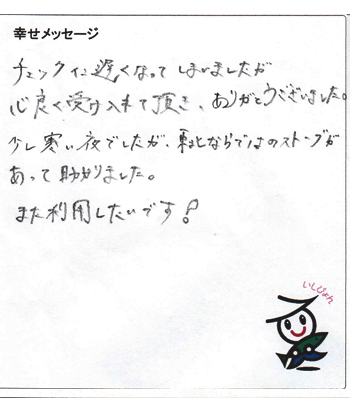 幸せメッセージ
チェックイン遅くなってしまいましたが
心良く受け入れて頂き、ありがとうございました。
少し寒い夜でしたが、東北ならではのストーブが
あって助かりました。
また利用したいです!
いしぴょん